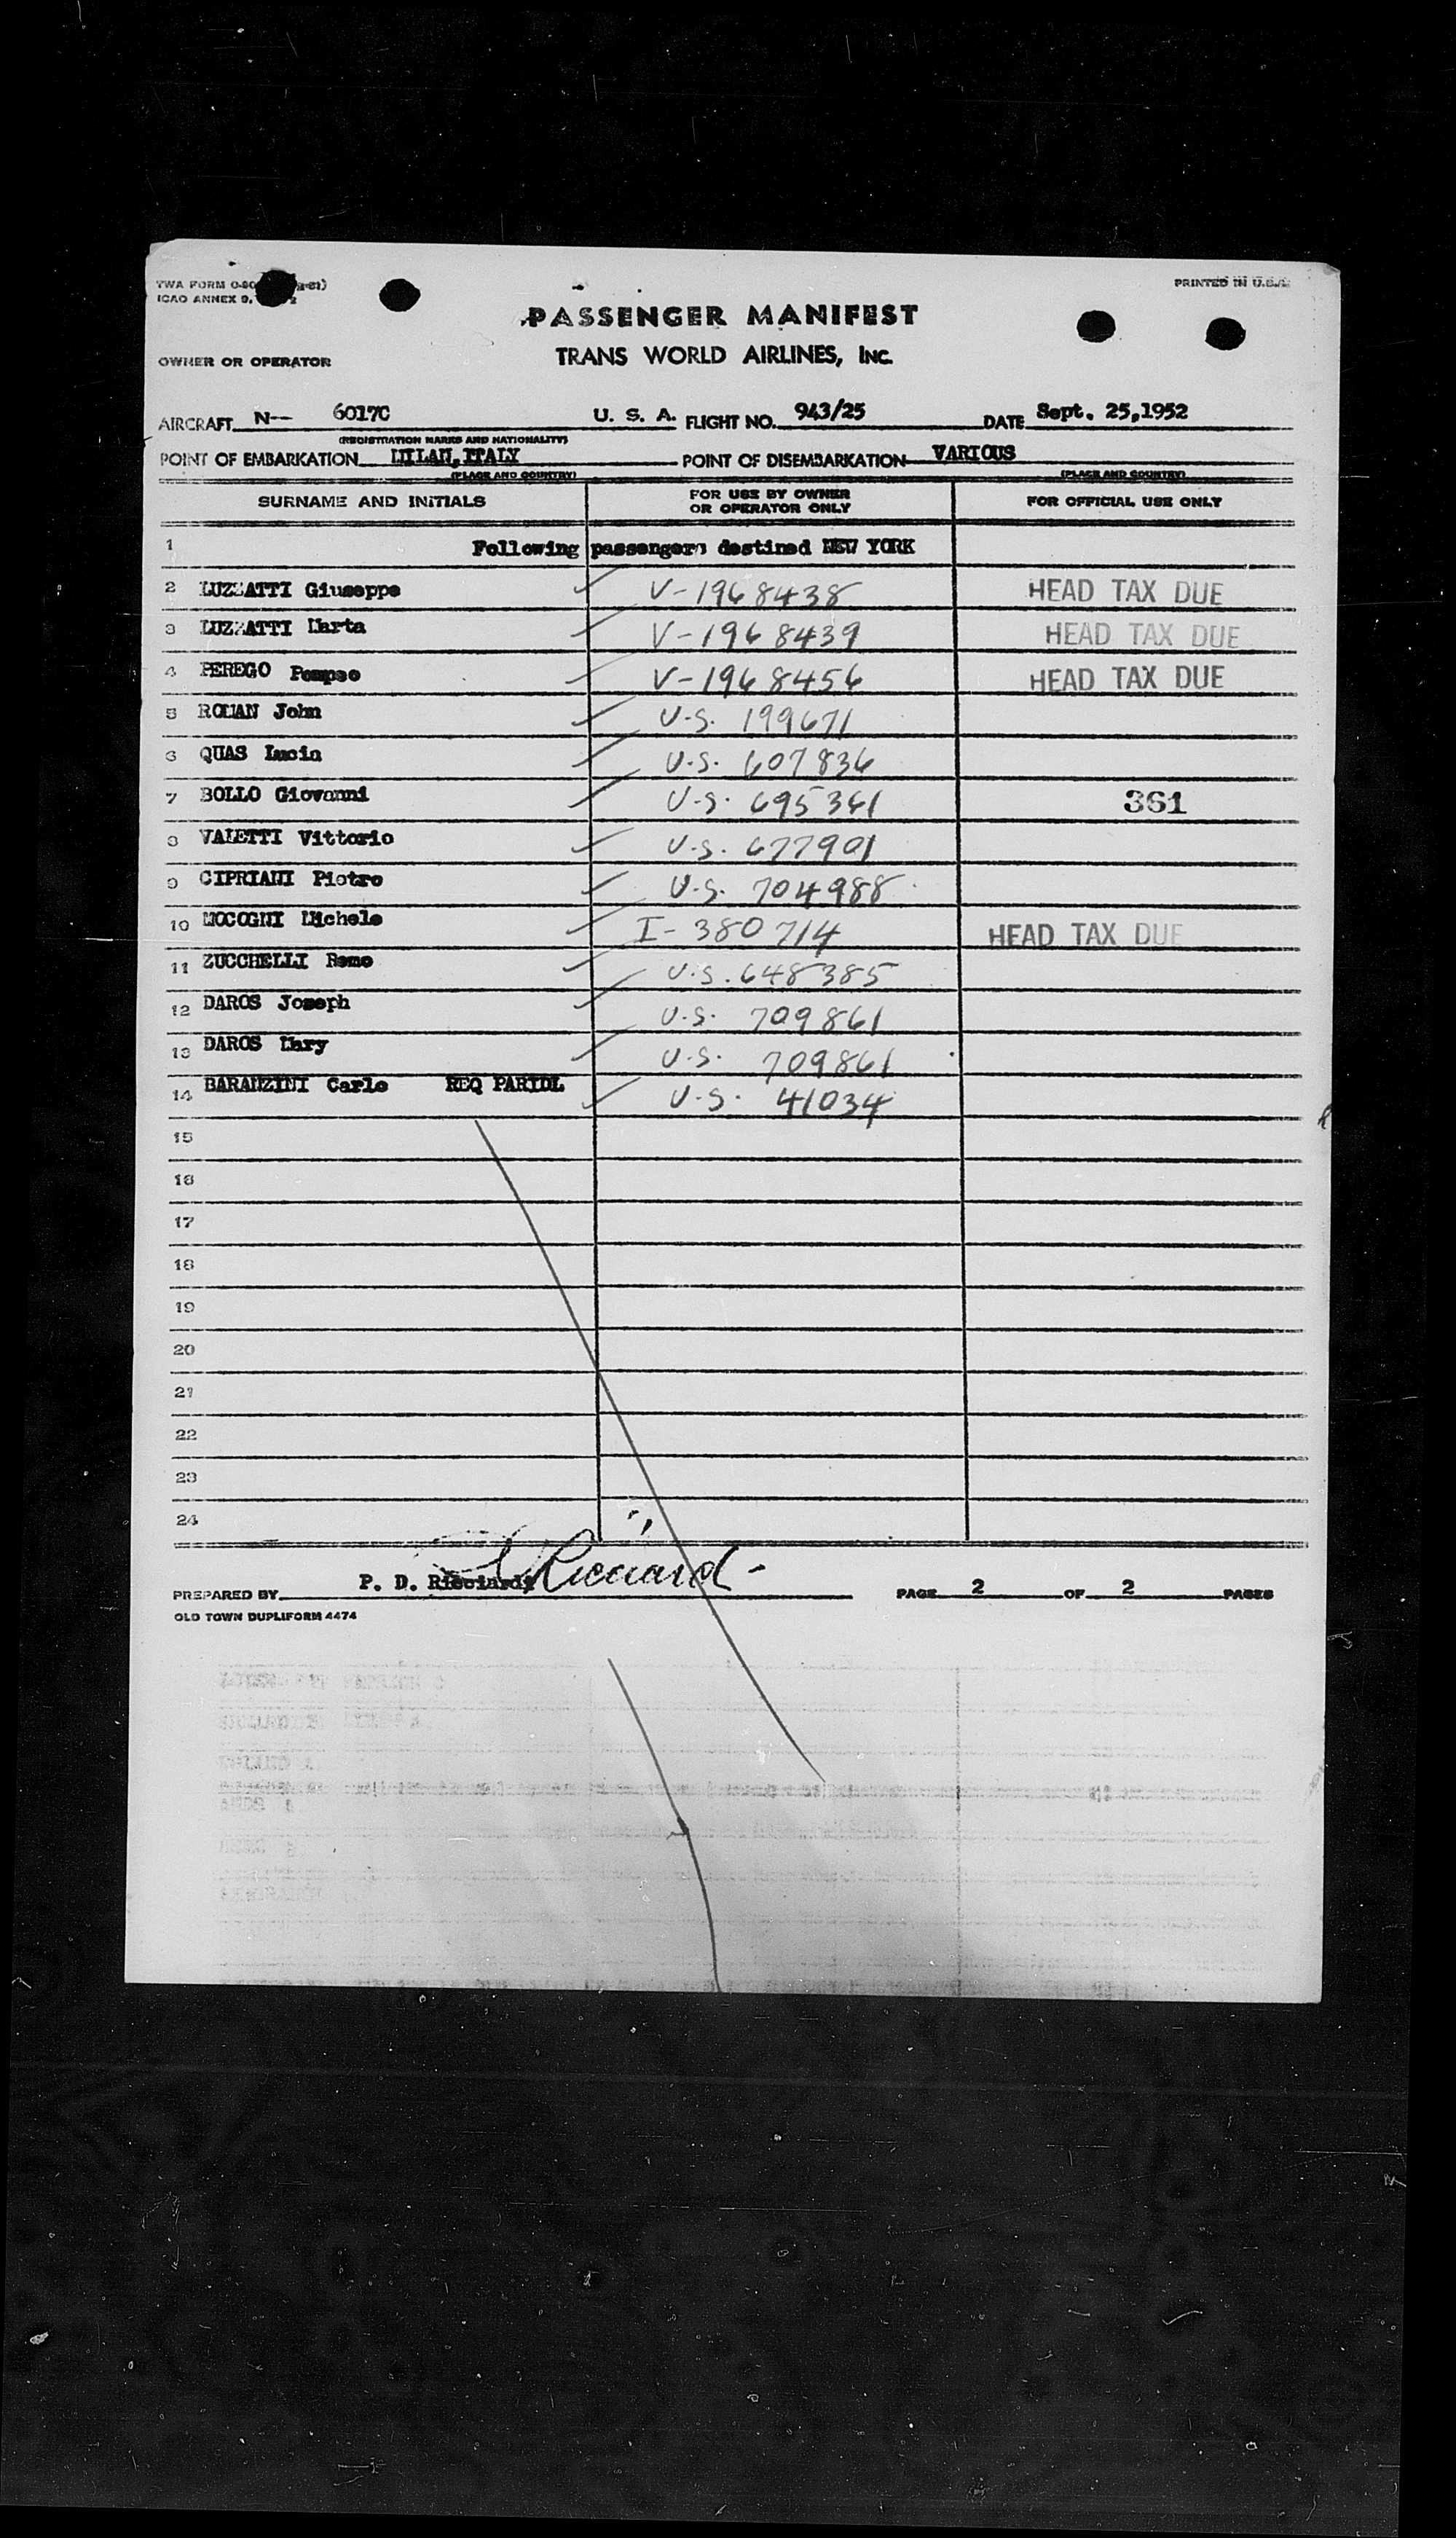 TWA FORM 0-80
ICAO ANNEX 9,
PRINTED IN U.S.A.
PASSENGER MANIFEST
OWNER OR OPERATOR TRANS WORLD AIRLINES, INC.
AIRCRAFT N-- 6017C U. S. A. FLIGHT NO. 943/25 DATE Sept. 25,1952
(REGISTRATION MARKS AND NATIONALITY)
POINT OF EMBARKATION MILAN, ITALY POINT OF DISEMBARKATION VARIOUS
(PLACE AND COUNTRY) (PLACE AND COUNTRY)
SURNAME AND INITIALS FOR USE BY OWNER OR OPERATOR ONLY FOR OFFICIAL USE ONLY
1 Following passengers destined NEW YORK
2 LUZZATTI Giuseppe V-1968438 HEAD TAX DUE
3 LUZZATTI Marta V-1968439 HEAD TAX DUE
4 PEREGO Pompeo V-1968456 HEAD TAX DUE
5 ROMAN John U.S. 199671
6 QUAS Lucia U.S. 607836
7 BOLLO Giovanni U.S. 695361 361
8 VALETTI Vittorio U.S. 677901
9 CIPRIANI Pietro U.S. 704988
10 MOCOGNI Michele I-380714 HEAD TAX DUE
11 ZUCCHELLI Remo U.S. 648385
12 DAROS Joseph U.S. 709861
13 DAROS Mary U.S. 709861
14 BARANZINI Carlo REQ PARIDL U.S. 41034
15
16
17
18
19
20
21
22
23
24
PREPARED BY P. D. Ricciardi Ricciardi PAGE 2 OF 2 PAGES
OLD TOWN DUPLIFORM 4474